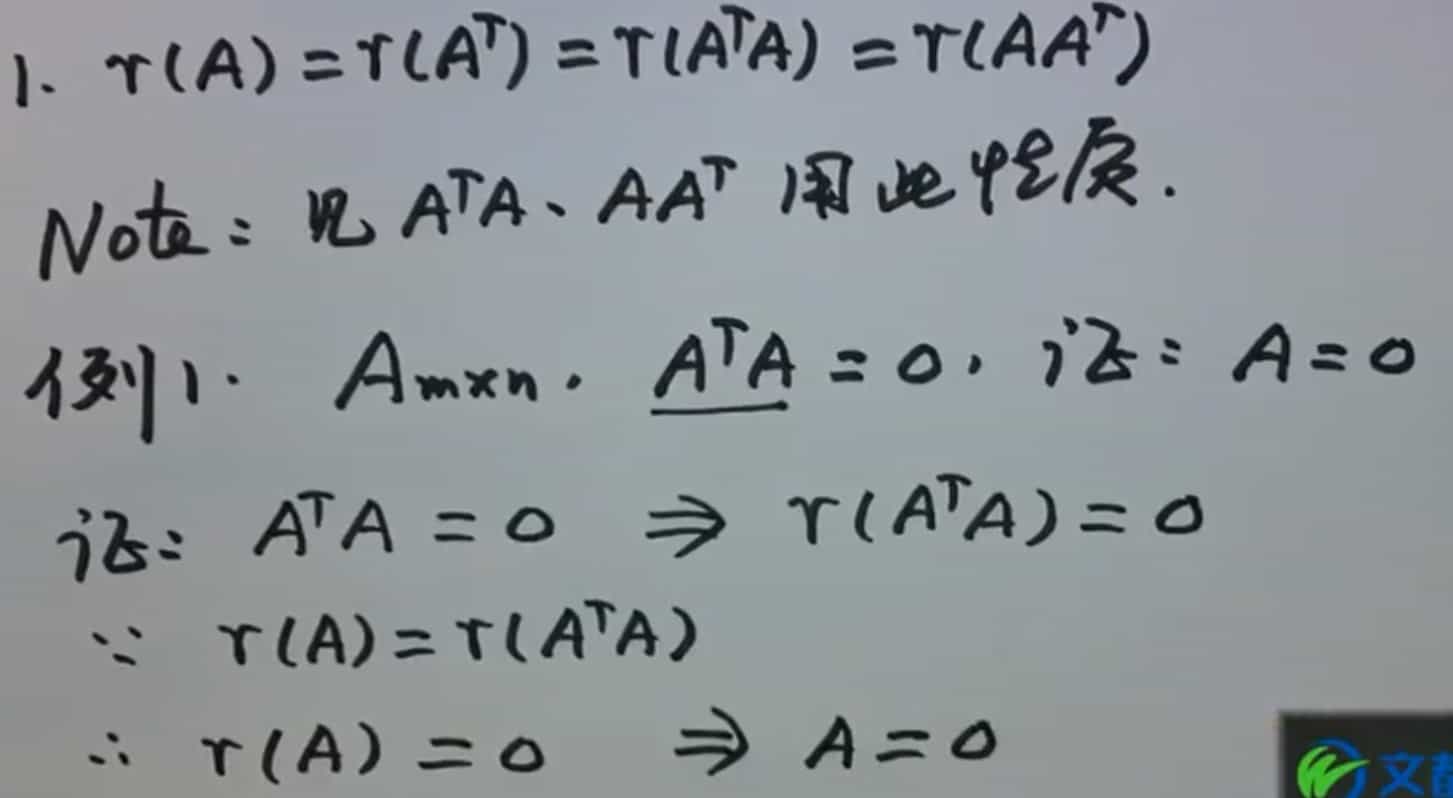 1. r(A) = r(Aᵀ) = r(AᵀA) = r(AAᵀ)
Note: 见 AᵀA、AAᵀ 用此性质.
例1. Aₘₓₙ. AᵀA = 0, 证: A = 0
证: AᵀA = 0 ⇒ r(AᵀA) = 0
∵ r(A) = r(AᵀA)
∴ r(A) = 0 ⇒ A = 0
文都